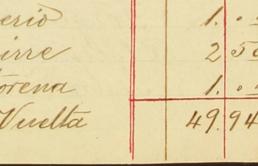 erio 1.
irre 2 50
orena 1.
Vuelta 49.94